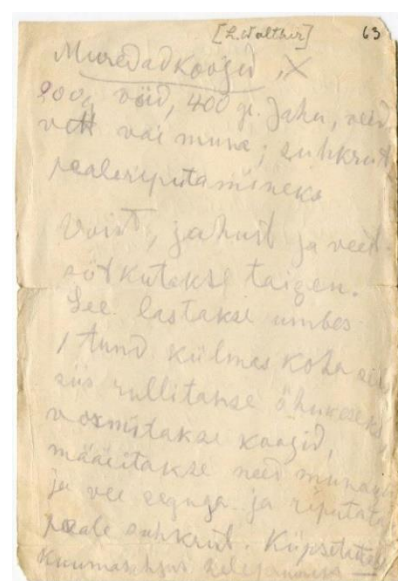 [L. Walther] 63
Muredad koogid, X
200 g võid, 400 gr. Jahu, veid
vett või muna; suhkrut
pealeriputamiseks
Voist, jahust ja veest
sõtkutakse taigen.
See lastakse umbes
1 tund külmas koha
siis rullitakse õhukeseks,
vormitakse koogid,
määritakse need muna
ja vee seguga ja riputata
peale suhkrut. Küpsetata
kuumas ahjus